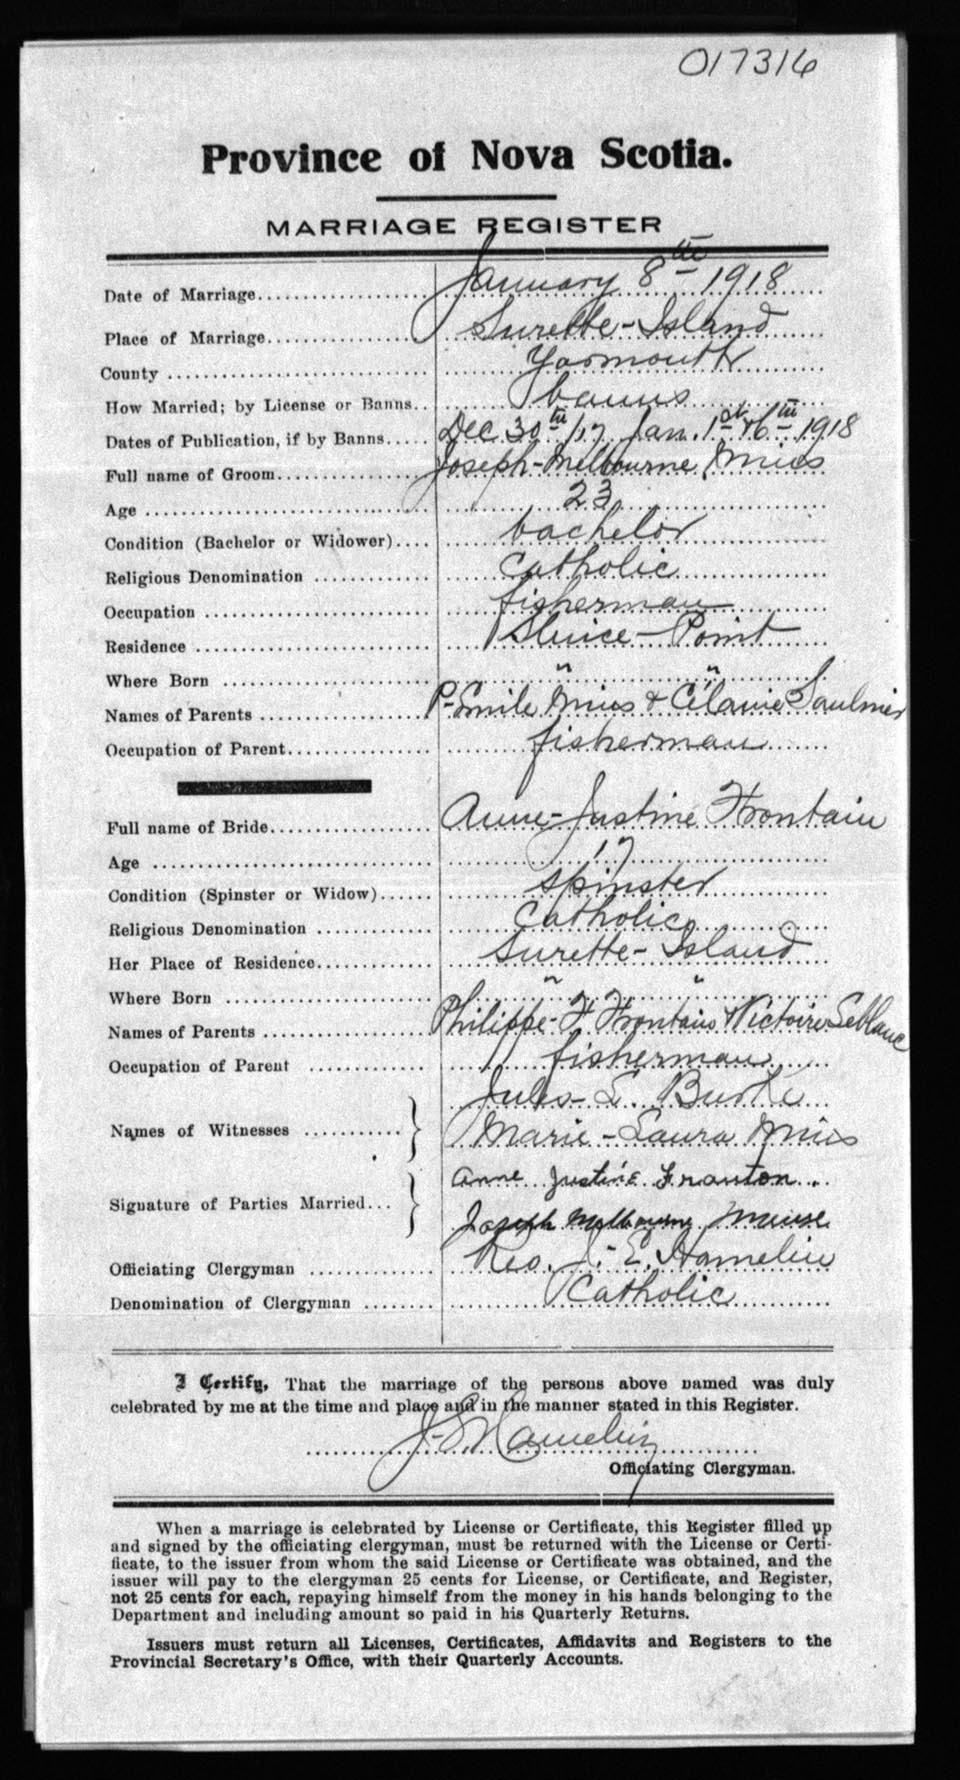 017316
Province of Nova Scotia.
MARRIAGE REGISTER
Date of Marriage January 8th 1918
Place of Marriage Surette-Island
County Yarmouth
How Married; by License or Banns banns
Dates of Publication, if by Banns Dec 30th /17 Jan. 1st & 6th 1918
Full name of Groom Joseph-Melbourne Mius
Age 23
Condition (Bachelor or Widower) bachelor
Religious Denomination Catholic
Occupation fisherman
Residence Sluice-Point
Where Born " "
Names of Parents P-Emile Mius & Célanie Saulnier
Occupation of Parent fisherman
Full name of Bride Anne-Justine Frontain
Age 17
Condition (Spinster or Widow) spinster
Religious Denomination Catholic
Her Place of Residence Surette-Island
Where Born " "
Names of Parents Philippe-F Frontain & Victoire Leblanc
Occupation of Parent fisherman
Names of Witnesses Jules-E. Burke
Marie-Laura Mius
Signature of Parties Married Anne Justine Franton
Joseph Melbourne Meuse
Officiating Clergyman Rev. J. E. Hamelin
Denomination of Clergyman Catholic
I Certify, That the marriage of the persons above named was duly
celebrated by me at the time and place and in the manner stated in this Register.
J-E Hamelin
Officiating Clergyman.
When a marriage is celebrated by License or Certificate, this Register filled up
and signed by the officiating clergyman, must be returned with the License or Certi-
ficate, to the issuer from whom the said License or Certificate was obtained, and the
issuer will pay to the clergyman 25 cents for License, or Certificate, and Register,
not 25 cents for each, repaying himself from the money in his hands belonging to the
Department and including amount so paid in his Quarterly Returns.
Issuers must return all Licenses, Certificates, Affidavits and Registers to the
Provincial Secretary's Office, with their Quarterly Accounts.